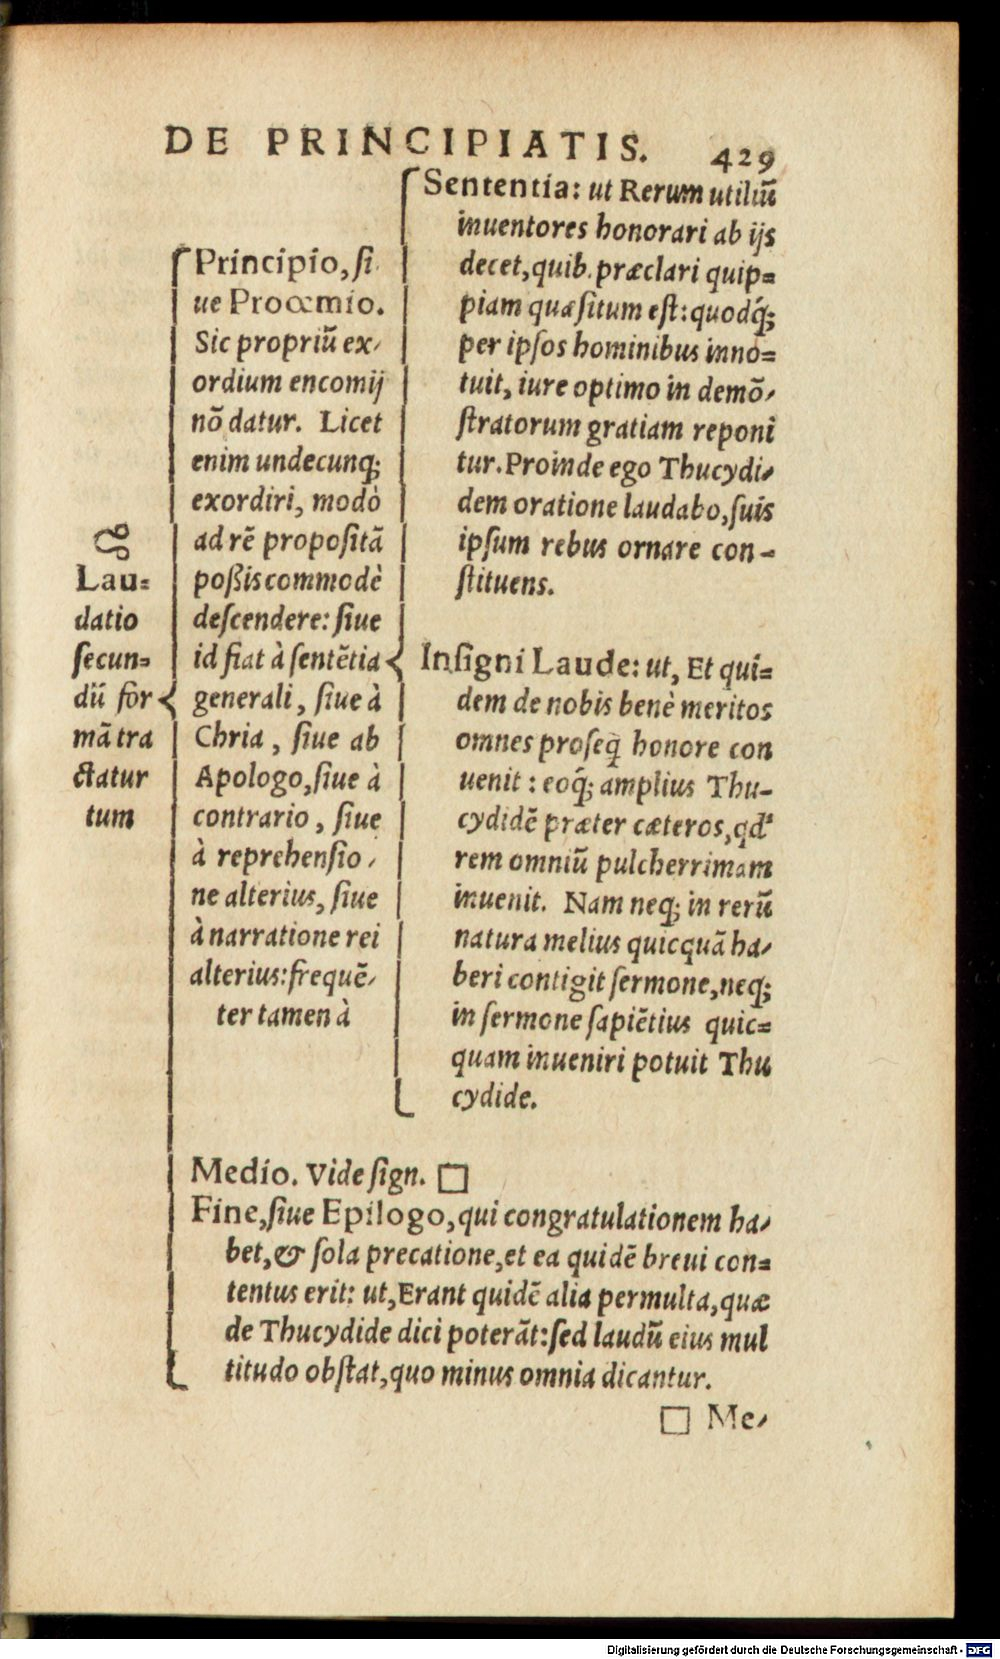 DE PRINCIPIATIS. 429
Lau=
datio
ſecun=
dū for
mā tra
ctatur
tum
Principio, ſi
ue Proœmio.
Sic propriū ex-
ordium encomij
nō datur. Licet
enim undecunq;
exordiri, modò
ad rē propoſitā
poßis commodè
deſcendere: ſiue
id fiat à ſentētia
generali, ſiue à
Chria, ſiue ab
Apologo, ſiue à
contrario, ſiue
à reprehenſio-
ne alterius, ſiue
à narratione rei
alterius: frequē-
ter tamen à
Sententia: ut Rerum utiliū
inuentores honorari ab ijs
decet, quib. præclari quip=
piam quæſitum eſt: quodq́;
per ipſos hominibus inno=
tuit, iure optimo in demō-
ſtratorum gratiam reponi
tur. Proinde ego Thucydi-
dem oratione laudabo, ſuis
ipſum rebus ornare con-
ſtituens.
Inſigni Laude: ut, Et qui=
dem de nobis benè meritos
omnes proſeq̄ honore con
uenit: eoq́; amplius Thu-
cydidē præter cæteros, qd'
rem omniū pulcherrimam
inuenit. Nam neq; in rerū
natura melius quicquā ha-
beri contigit ſermone, neq;
in ſermone ſapiētius quic=
quam inueniri potuit Thu
cydide.
Medio. Vide ſign. □
Fine, ſiue Epilogo, qui congratulationem ha-
bet, & ſola precatione, et ea quidē breui con=
tentus erit: ut, Erant quidē alia permulta, quæ
de Thucydide dici poterāt: ſed laudū eius mul
titudo obſtat, quo minus omnia dicantur.
□ Me-
Digitalisierung gefördert durch die Deutsche Forschungsgemeinschaft - DFG